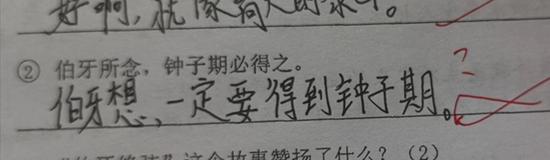 好啊,就像高人的
② 伯牙所念,钟子期必得之。
伯牙想,一定要得到钟子期。
?
这个故事赞扬了什么?(2)